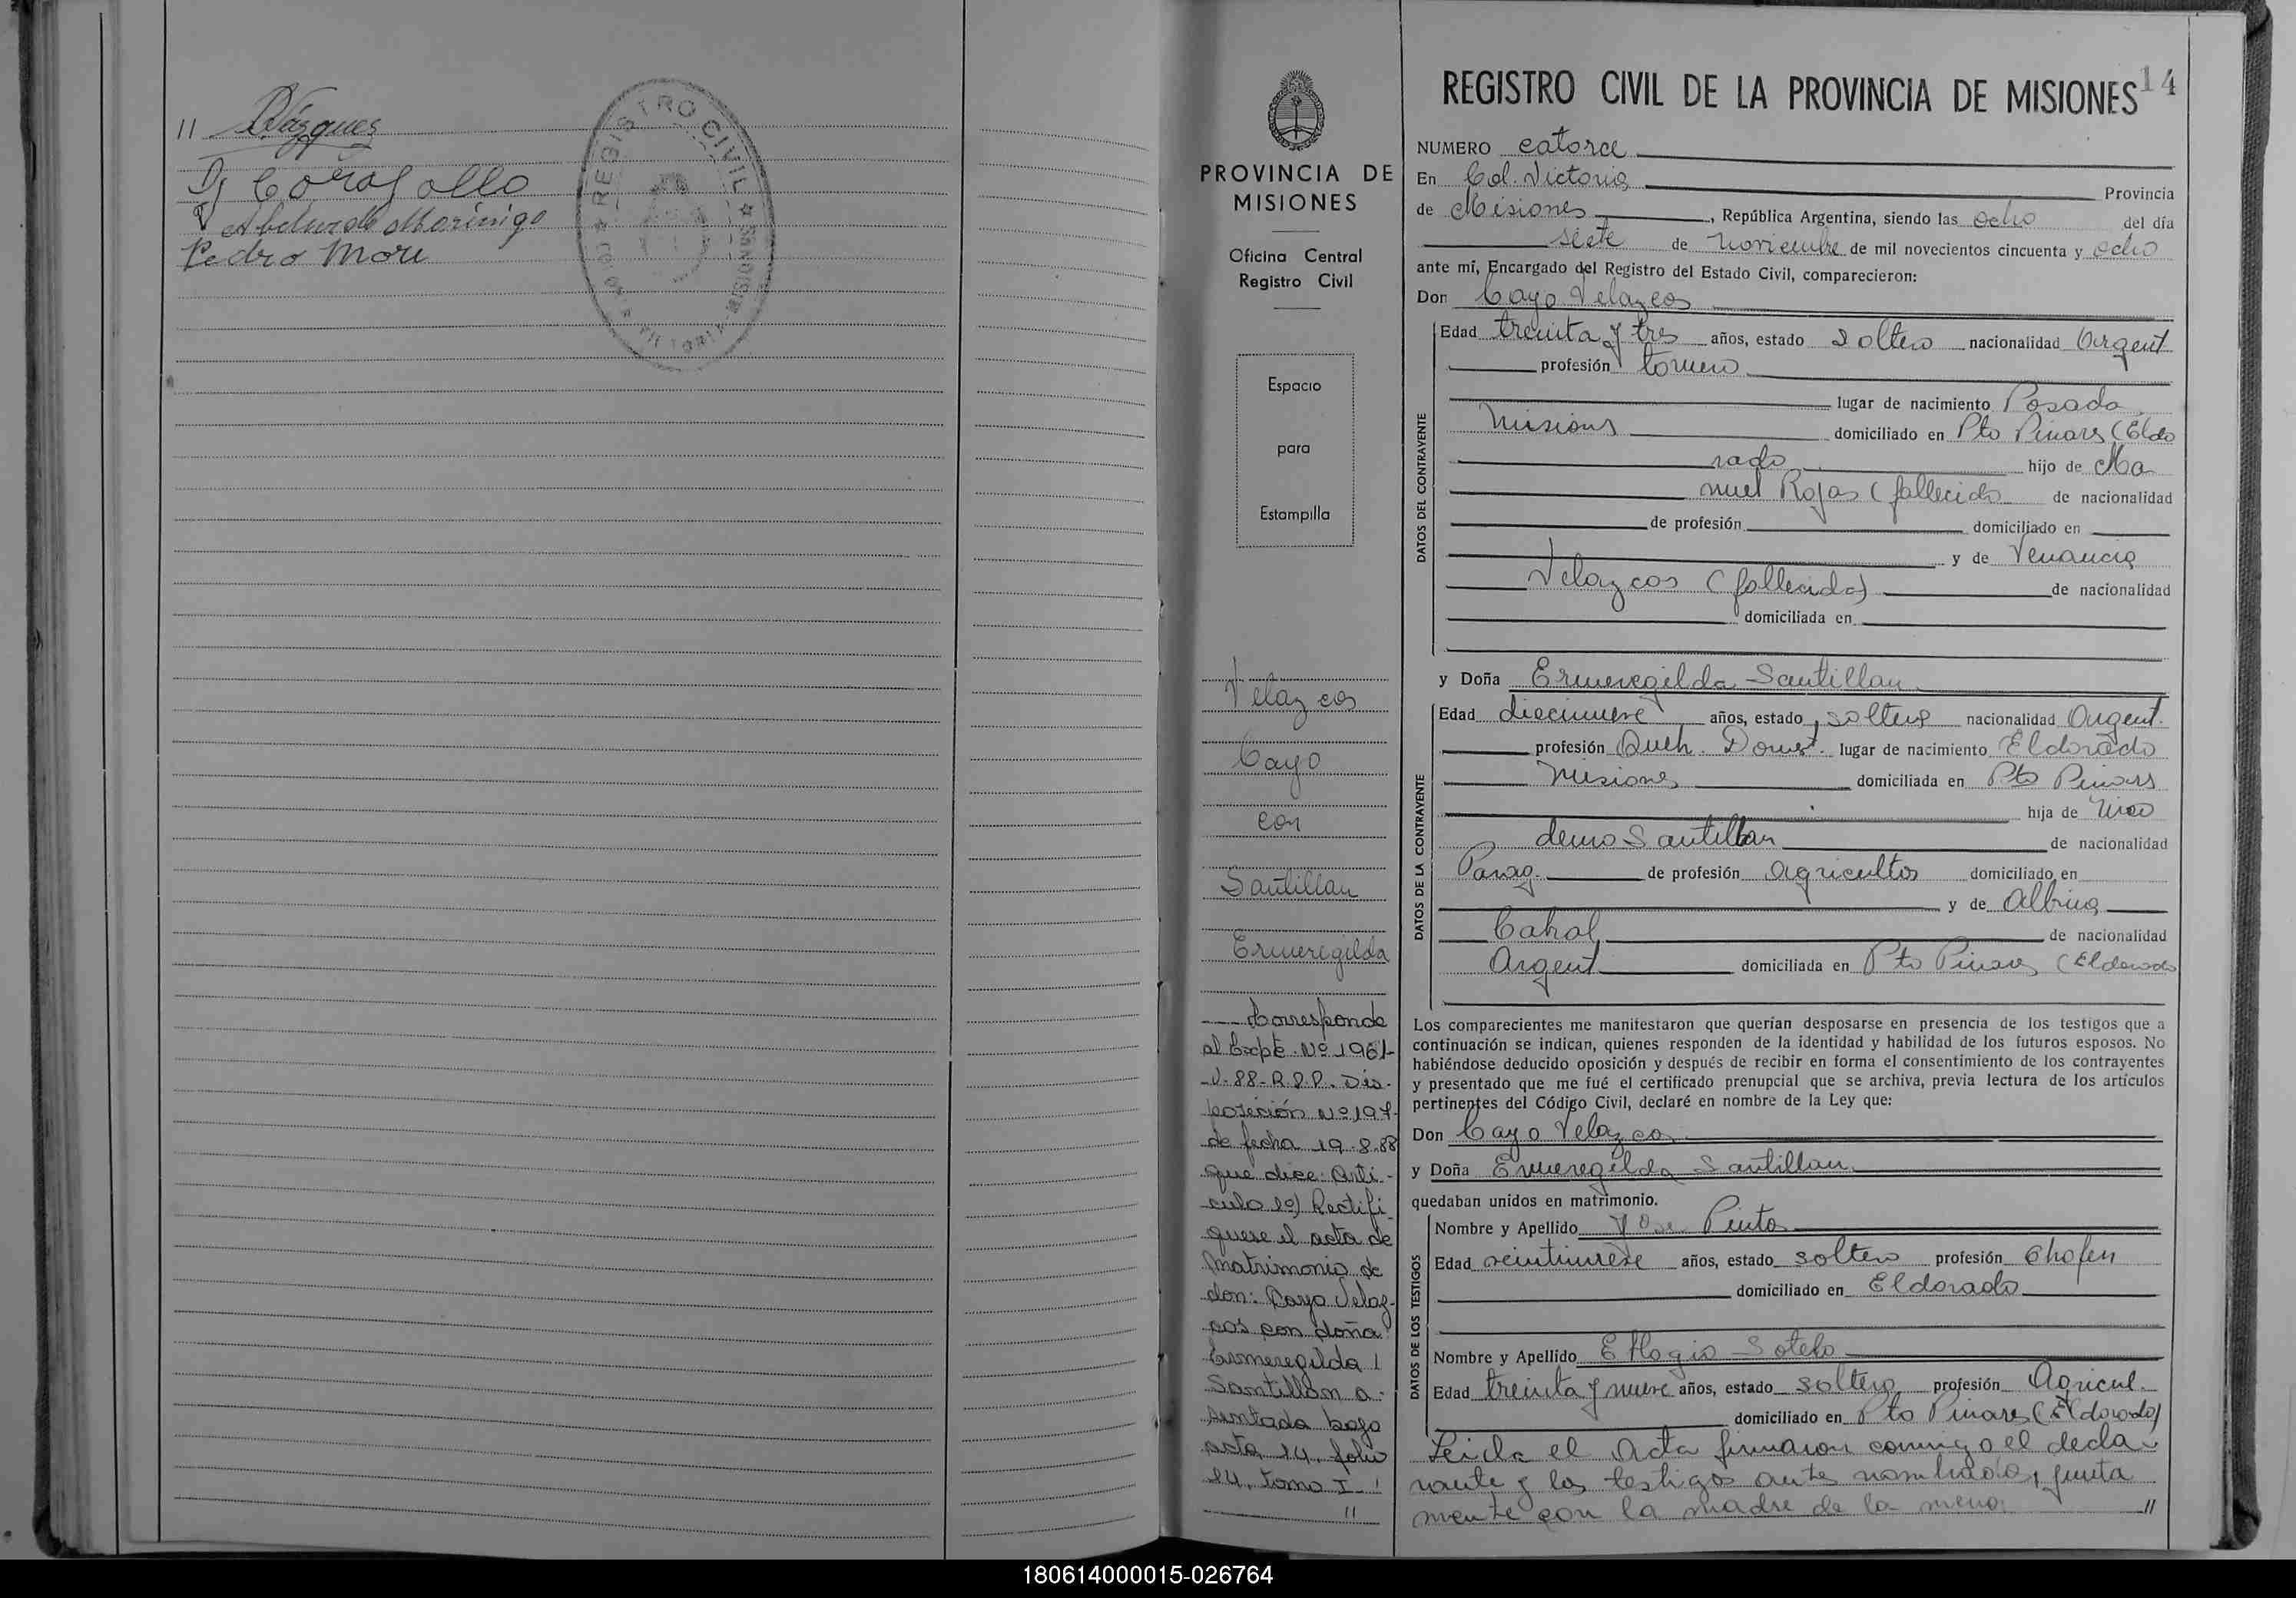 11 Vázques
D. Coragollo
Abelardo Morinigo
Pedro More
REGISTRO CIVIL
PROVINCIA DE
MISIONES
Oficina Central
Registro Civil
Espacio
para
Estampilla
Velazcos
Cayo
con
Santillan
Ermeregilda
Corresponde
al Expte. Nº 1961-
V-88-R.P.P. Dis-
posición Nº 197-
de fecha 19-8-88
que dice: Artí-
culo 1º) Rectifi-
quese el acta de
Matrimonio de
don: Cayo Velaz-
cos con doña
Ermeregilda
Santillan a-
sentada bajo
acta 14, folio
14, tomo I-
//
REGISTRO CIVIL DE LA PROVINCIA DE MISIONES 14
NUMERO catorce
En Col. Victoria Provincia
de Misiones, República Argentina, siendo las ocho del día
siete de noviembre de mil novecientos cincuenta y ocho
ante mí, Encargado del Registro del Estado Civil, comparecieron:
Don Cayo Velazcos
DATOS DEL CONTRAYENTE
Edad treinta y tres años, estado soltero nacionalidad Argent
profesión tornero
lugar de nacimiento Posada
Misiones domiciliado en Pto Pinares (Eldo
rado hijo de Ma
nuel Rojas (fallecido de nacionalidad
de profesión domiciliado en
y de Venancia
Velazcos (fallecida) de nacionalidad
domiciliada en
y Doña Ermeregilda Santillan
DATOS DE LA CONTRAYENTE
Edad diecinueve años, estado soltera nacionalidad Argent.
profesión Queh. Domest. lugar de nacimiento Eldorado
Misiones domiciliada en Pto Pinares
hija de Nico
demo Santillan de nacionalidad
Parag. de profesión Agricultor domiciliado en
y de Albina
Cabral de nacionalidad
Argent domiciliada en Pto Pinares (Eldorado
Los comparecientes me manifestaron que querían desposarse en presencia de los testigos que a
continuación se indican, quienes responden de la identidad y habilidad de los futuros esposos. No
habiéndose deducido oposición y después de recibir en forma el consentimiento de los contrayentes
y presentado que me fué el certificado prenupcial que se archiva, previa lectura de los artículos
pertinentes del Código Civil, declaré en nombre de la Ley que:
Don Cayo Velazcos
y Doña Ermeregilda Santillan
quedaban unidos en matrimonio.
DATOS DE LOS TESTIGOS
Nombre y Apellido Jose Pinto
Edad veintinueve años, estado soltero profesión Chofer
domiciliado en Eldorado
Nombre y Apellido Eflogio Sotelo
Edad treinta y nueve años, estado soltero profesión Agricul.
domiciliado en Pto Pinares (Eldorado)
Leida el Acta firmaron conmigo el decla-
rante y los testigos antes nombrados, junta
mente con la madre de la menor //
180614000015-026764